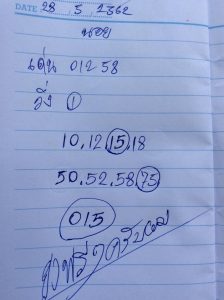 DATE 28 5 2562
นอย
เด่น 012 58
วิ่ง 1
10.12 15.18
50.52.58 75
015